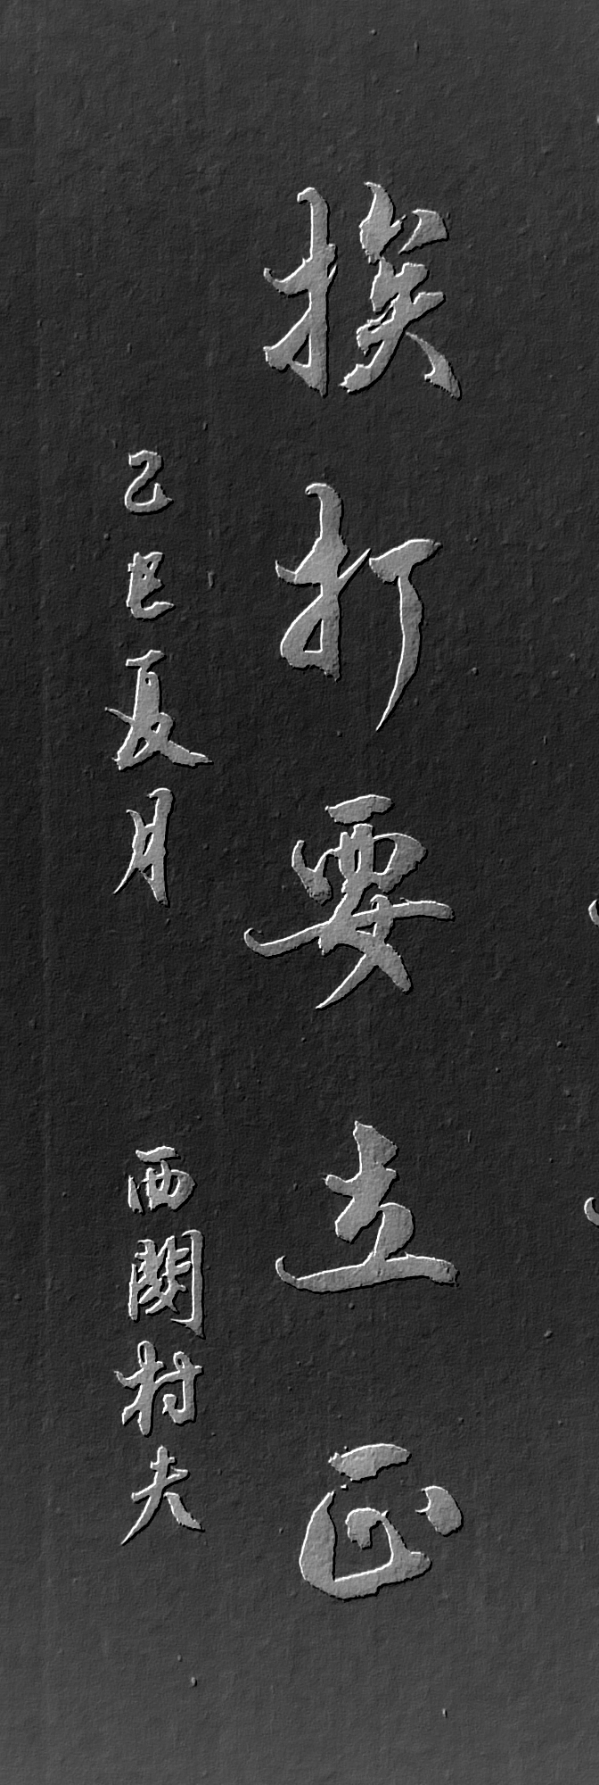 挨打要立正
乙巳夏月
西関村夫